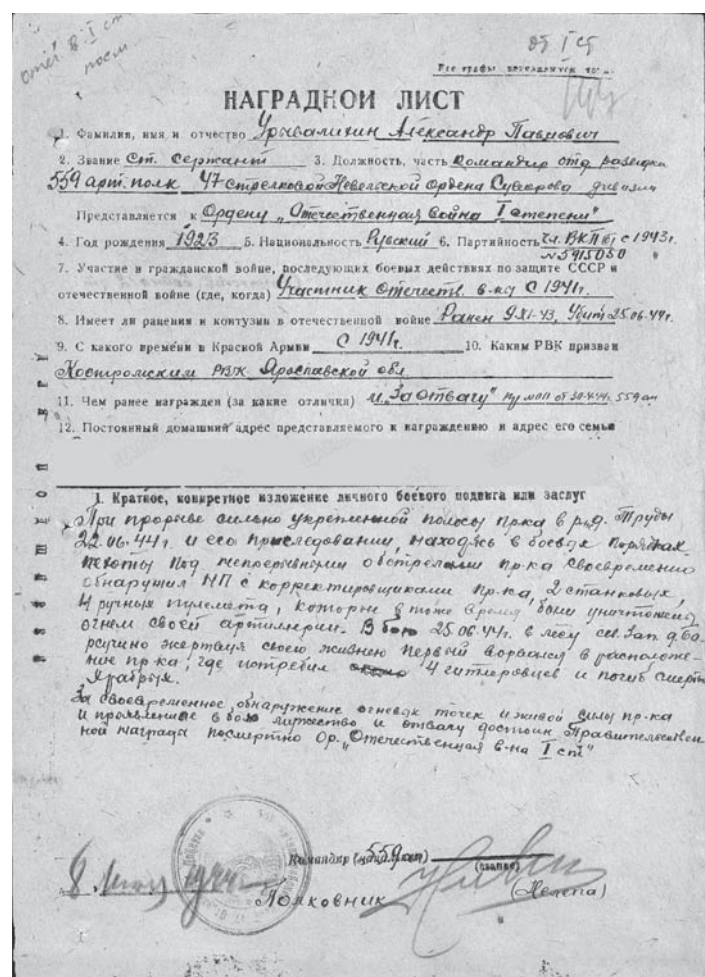 от I ст
Все графы
НАГРАДНОЙ ЛИСТ
1. Фамилия, имя и отчество Александр Павлович
2. Звание Ст. Сержант 3. Должность, часть Командир отд. разведки
559 арт. полк 47 стрелковой Невельской Ордена Суворова дивизии
Представляется к Ордену „Отечественная война I степени"
4. Год рождения 1923 5. Национальность Русский 6. Партийность чл. ВКП(б) с 1943г.
N 5915050
7. Участие в гражданской войне, последующих боевых действиях по защите СССР и
отечественной войне (где, когда) Участник отечеств. в-ны с 1941г.
8. Имеет ли ранения и контузии в отечественной войне Ранен 9.XI-43, Убит 25.06.44г.
9. С какого времени в Красной Армии С 1941г. 10. Каким РВК призван
Костромским РВК Ярославской обл.
11. Чем ранее награжден (за какие отличия) м. „За Отвагу" 559 ап
12. Постоянный домашний адрес представляемого к награждению и адрес его семьи
1. Краткое, конкретное изложение личного боевого подвига или заслуг
При прорыве сильно укрепленной полосы пр-ка в р. д. Труды
22.06.44г. и его преследовании, находясь в боевых порядках
пехоты под непрерывными обстрелами пр-ка своевременно
обнаружил НП с корректировщиками пр-ка, 2 станковых,
4 ручных пулемета, которые в тоже время были уничтожены
огнем своей артиллерии. В бою 25.06.44г. в лесу сев. зап. д.
жертвуя своею жизнею первый ворвался в расположе-
ние пр-ка, где истребил 4 гитлеровцев и погиб смертью
храбрых.
За своевременное обнаружение огневых точек и живой силы пр-ка
и проявленные в бою мужество и отвагу достоин Правительствен
ной награда посмертно Ор. „Отечественная в-на I ст"
Командир (нач. 559 ап)
(звание)
8 1944
Полковник (Нелепа)